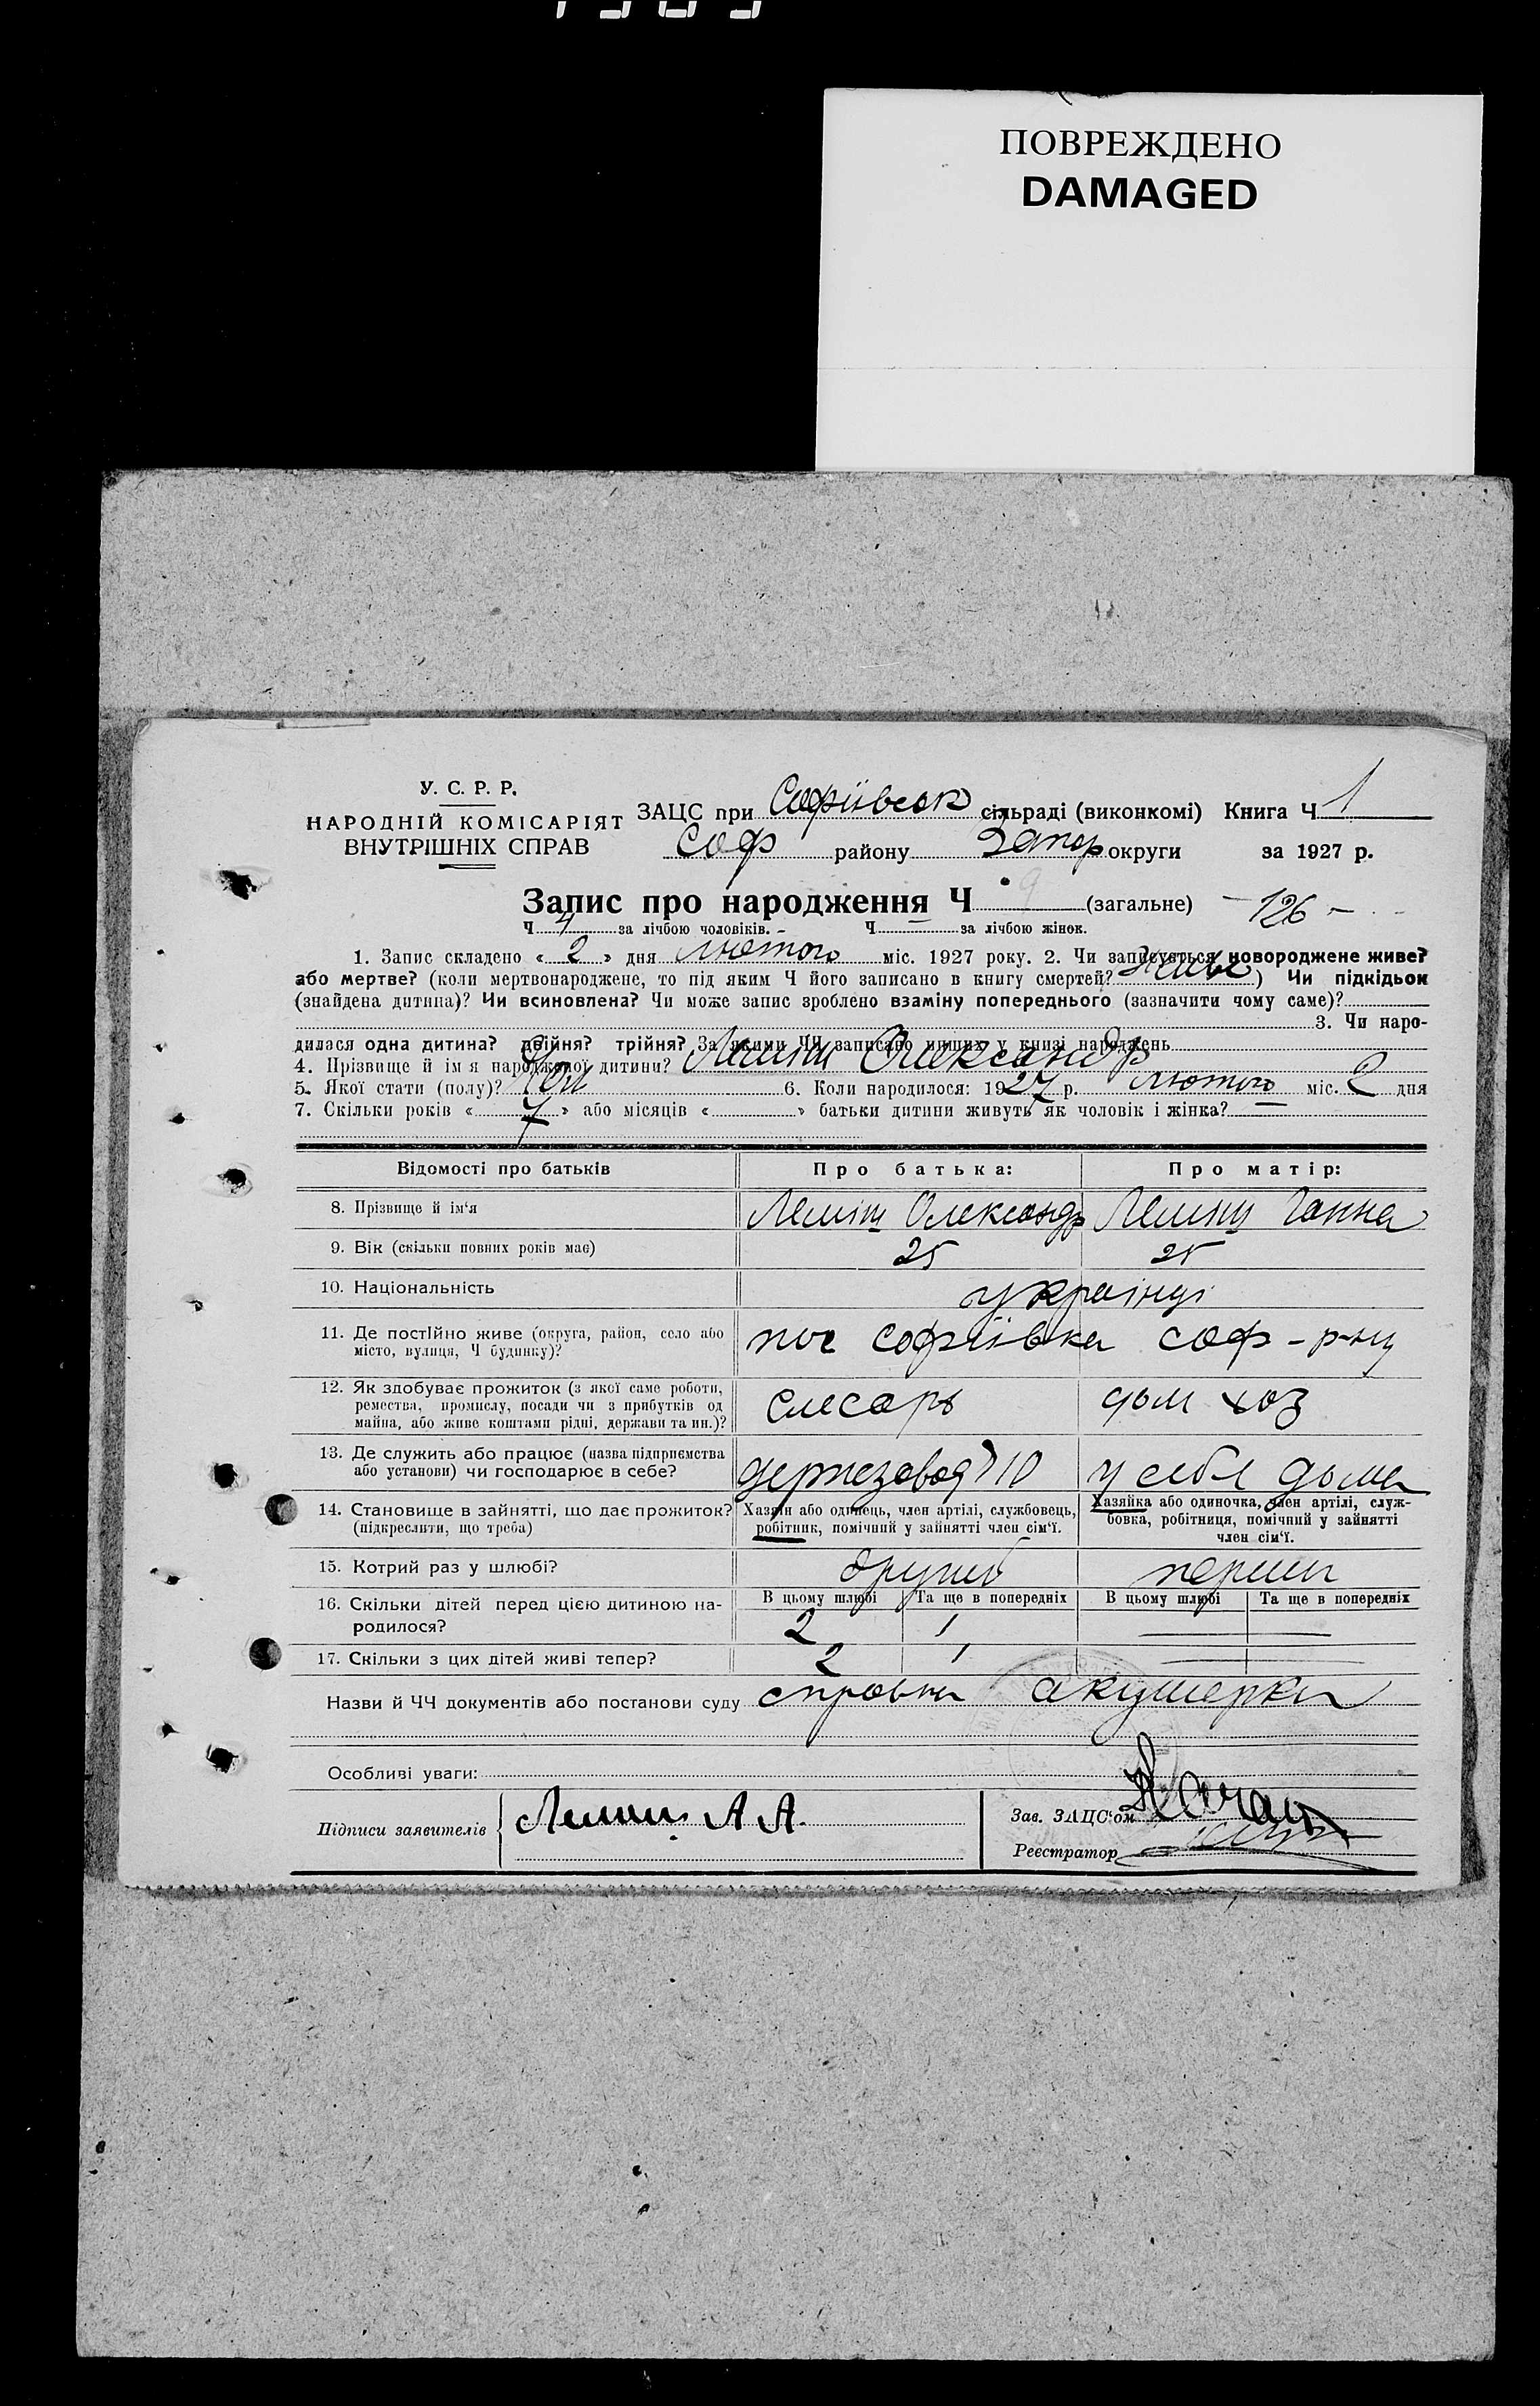 ПОВРЕЖДЕНО
DAMAGED
У. С. Р. Р.
НАРОДНІЙ КОМІСАРІЯТ
ВНУТРІШНІХ СПРАВ
ЗАЦС при Софіївськ сільраді (виконкомі) Книга Ч 1
Соф району Запор округи за 1927 р.
Запис про народження Ч 9 (загальне) - 126 -
Ч 4 за лічбою чоловіків. - Ч — за лічбою жінок.
1. Запис складено « 2 » дня лютого міс. 1927 року. 2. Чи записується новороджене живе?
або мертве? (коли мертвонароджене, то під яким Ч його записано в книгу смертей? живе ) Чи підкідьок
(знайдена дитина)? Чи всиновлена? Чи може запис зроблено взаміну попереднього (зазначити чому саме)?
3. Чи наро-
дилася одна дитина? двійня? трійня? За якими ЧЧ записано инших у книзі народжень
4. Прізвище й ім'я народженої дитини? Леміш Олександр
5. Якої стати (полу)? чол 6. Коли народилося: 1927 р. лютого міс. 2 дня
7. Скільки років « 7 » або місяців « » батьки дитини живуть як чоловік і жінка? —
Відомості про батьків Про батька: Про матір:
8. Прізвище й ім'я Леміш Олександр Леміш Ганна
9. Вік (скільки повних років має) 25 25
10. Національність українці
11. Де постійно живе (округа, район, село або
місто, вулиця, Ч будинку)? пос Софіївка Соф - р-ну
12. Як здобуває прожиток (з якої саме роботи,
ремества, промислу, посади чи з прибутків од
майна, або живе коштами рідні, держави та ин.)? слесарь дом хоз
13. Де служить або працює (назва підприємства
або установи) чи господарює в себе? держзавод 10 у себя дома
14. Становище в зайнятті, що дає прожиток?
(підкреслити, що треба)
Хазяїн або одинець, член артілі, службовець,
робітник, помічний у зайнятті член сім'ї.
Хазяйка або одиночка, член артілі, служ-
бовка, робітниця, помічний у зайнятті
член сім'ї.
15. Котрий раз у шлюбі? другий перший
16. Скільки дітей перед цією дитиною на-
родилося?
В цьому шлюбі Та ще в попередніх В цьому шлюбі Та ще в попередніх
2 1 — —
17. Скільки з цих дітей живі тепер? 2 1 — —
Назви й ЧЧ документів або постанови суду справка акушерки
Особливі уваги:
Підписи заявителів Леміш А А.
Зав. ЗАЦС'ом
Реєстратор